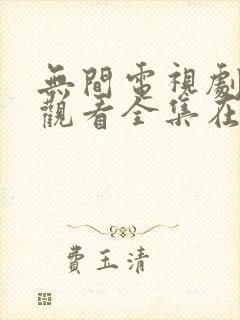 無間電視劇
觀看全集在
費玉清